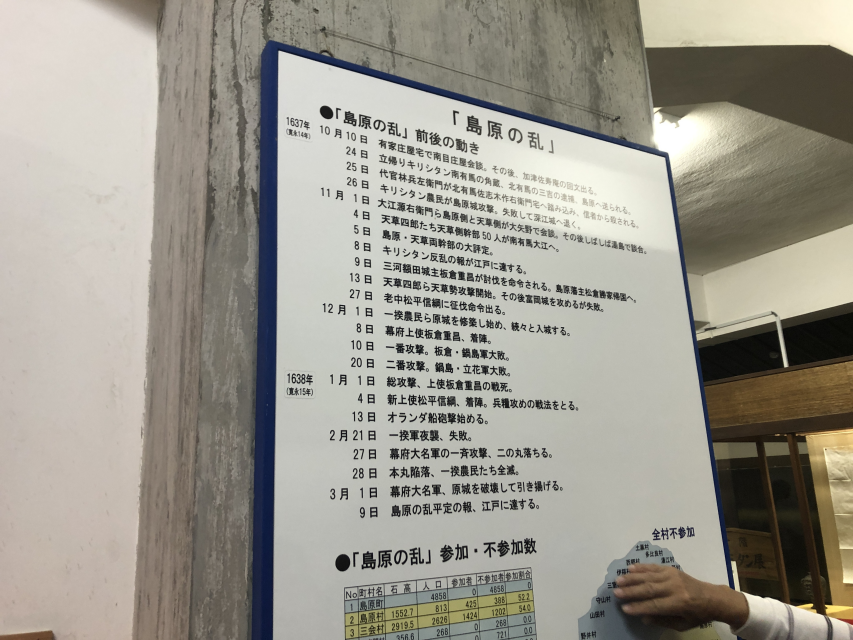 「島原の乱」
●「島原の乱」前後の動き
1637年
(寛永14年)
10月10日 有家庄屋宅で南目庄屋会談。その後、加津佐寿庵の回文出る。
24日 立帰りキリシタン南有馬の角蔵、北有馬の三吉の逮捕、島原へ送られる。
25日 代官林兵左衛門が北有馬佐志木作右衛門宅へ踏み込み、信者から殺される。
26日 キリシタン農民が島原城攻撃。失敗して深江城へ退く。
11月1日 大江源右衛門ら島原側と天草側が大矢野で会談。その後しばしば湯島で談合。
4日 天草四郎たち天草側幹部50人が南有馬大江へ。
5日 島原・天草両幹部の大評定。
8日 キリシタン反乱の報が江戸に達する。
9日 三河額田城主板倉重昌が討伐を命令される。島原藩主松倉勝家帰国へ。
13日 天草四郎ら天草勢攻撃開始。その後富岡城を攻めるが失敗。
27日 老中松平信綱に征伐命令出る。
12月1日 一揆農民ら原城を修築し始め、続々と入城する。
8日 幕府上使板倉重昌、着陣。
10日 一番攻撃。板倉・鍋島軍大敗。
20日 二番攻撃。鍋島・立花軍大敗。
1638年
(寛永15年)
1月1日 総攻撃、上使板倉重昌の戦死。
4日 新上使松平信綱、着陣。兵糧攻めの戦法をとる。
13日 オランダ船砲撃始める。
2月21日 一揆軍夜襲、失敗。
27日 幕府大名軍の一斉攻撃、二の丸落ちる。
28日 本丸陥落、一揆農民たち全滅。
3月1日 幕府大名軍、原城を破壊して引き揚げる。
9日 島原の乱平定の報、江戸に達する。
●「島原の乱」参加・不参加数
No 町村名 石高 人口 参加者 不参加者 参加割合
1 島原町 4858 0 4858 0
2 島原村 1552.7 813 425 388 52.2
3 三会村 2919.5 2626 1424 1202 54.0
356.6 268 0 268 0.0
0 721 0.0
全村不参加
土黒村
多比良村
西郷村
湯江村
伊福村
守山村
山田村
野井村